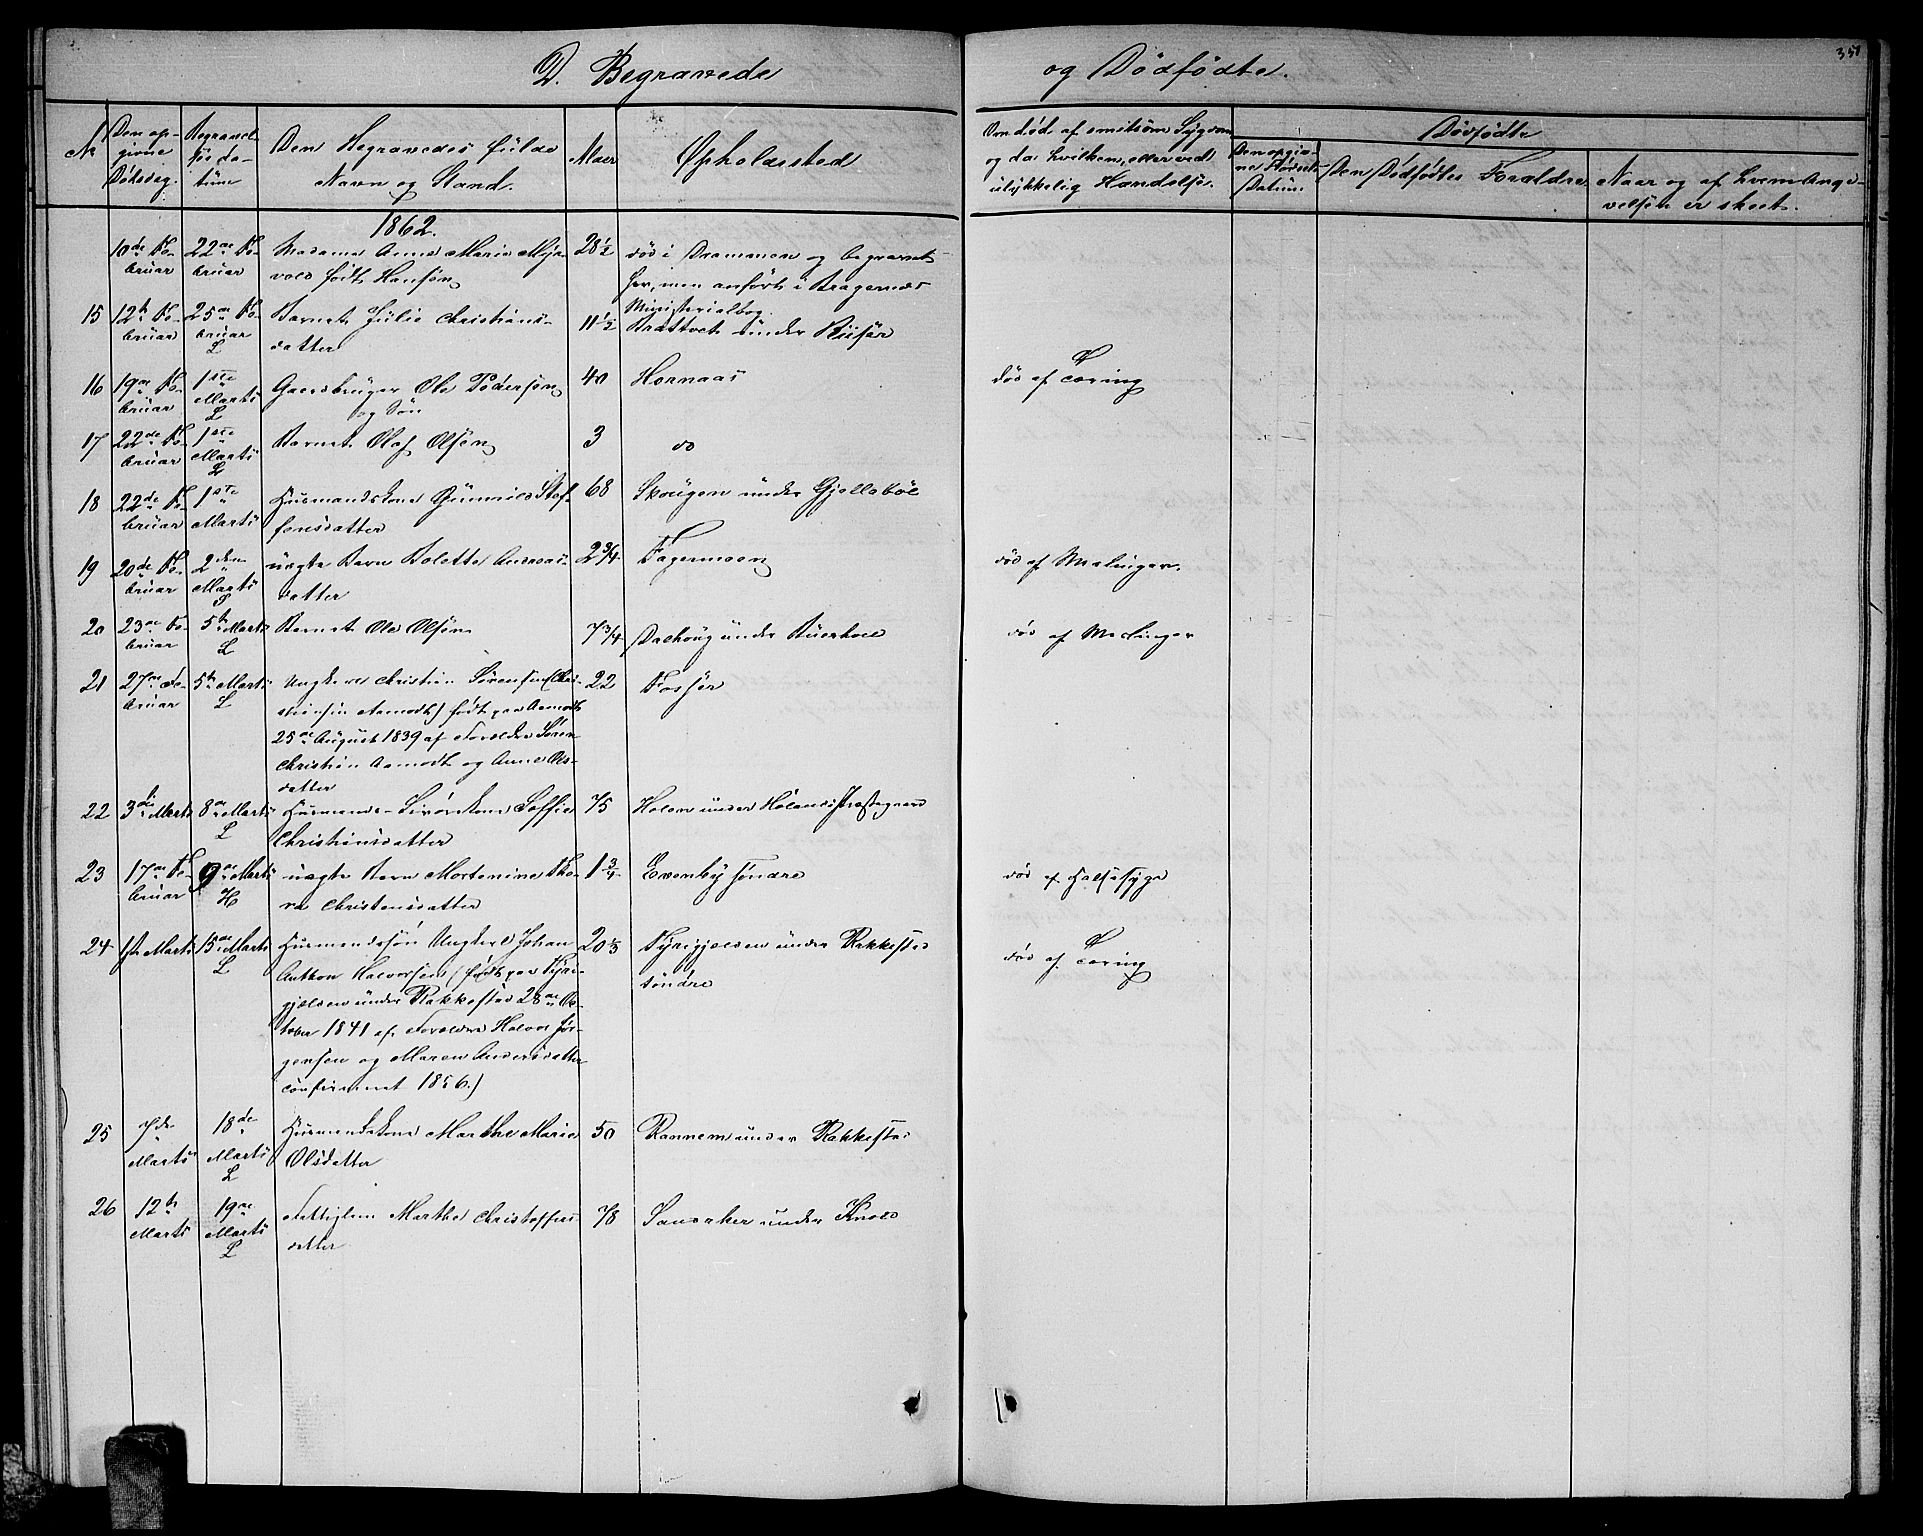 351
D. Begravede og Dødfødte.
No
Den op-
givne
Dødsdag.
Begravel-
ses da-
tum
Den Begravedes fulde
Navn og Stand.
Alder
Opholdssted
Om død af smitsom Sygdom
og da hvilken, eller ved
ulykkelig Hændelse.
Dødfødte
Den opgiv-
ne Fødsels
Datum
Den Dødfødtes Forældre
Naar og af hvem Angi-
velsen er skeet.
1862.
10de Fe-
bruar
22de Fe-
bruar
Madame Anne Marie
født Hansen
28 1/2
død i Drammen og begravet
her, men anført i Bragernæs
Ministerialbog.
15 12te Fe-
bruar
25de Fe-
bruar
L
Barnet Julie Christians-
datter
11 1/2
Brattvet under Riiser
16 19de Fe-
bruar
1ste
Marts
L
Gaardbruger Ole Pedersen
og Søn
40 Hornaas
død af Tæring
17 22de Fe-
bruar
1ste
Marts
L
Barnet Olaf Olsen
3 do
18 22de Fe-
bruar
1ste
Marts
Huusmandskone Gunnild Stef-
fensdatter
68 Skougen under Gjellebøl
19 20de Fe-
bruar
2den
Marts
S
uægte Barn Bolette Andreas-
datter
2 3/4 Fagermoen
død af Meslinger.
20 23de Fe-
bruar
5te Marts
L
Barnet Ole Olsen
7 3/4 under
død af Meslinger
21 27de Fe-
bruar
5te Marts
L
Ungkarl Christian Sørensen (Chri-
stiansen Aamodt) født paa Aamodt
25de August 1839 af Forældre Søren
Christian Aamodt og Anne Ols-
datter
22 Fosser
22 3die Marts
8de Marts
L
Huusmands- Soffie
Christiansdatter
75 Holen under Hølands Præstegaard
23 17de Fe-
bruar
9de Marts
H
uægte Barn Mortenine Tho-
ra Christensdatter
1 3/4 Evenby søndre
død af Halssyge
24 1ste Marts
15de Marts
L
Huusmandssøn Ungkarl Johan
Anthon Halvorsen (født paa Fyri-
gjelsen under Rakkestad 28de Oc-
tober 1841 af Forældre Halvor Jør-
gensen og Maren Andersdatter
confirmeret 1856.)
20 1/3 Fyrigjelsen under Rakkestad
søndre
død af Tæring
25 7de
Marts
18de
Marts
L
Huusmandskone Marthe Marie
Olsdatter
50 Rannem under Rakkestad
26 12te
Marts
19de
Marts
L
Fattiglem Marthe Christoffers-
datter
78 Sandaker under Knold